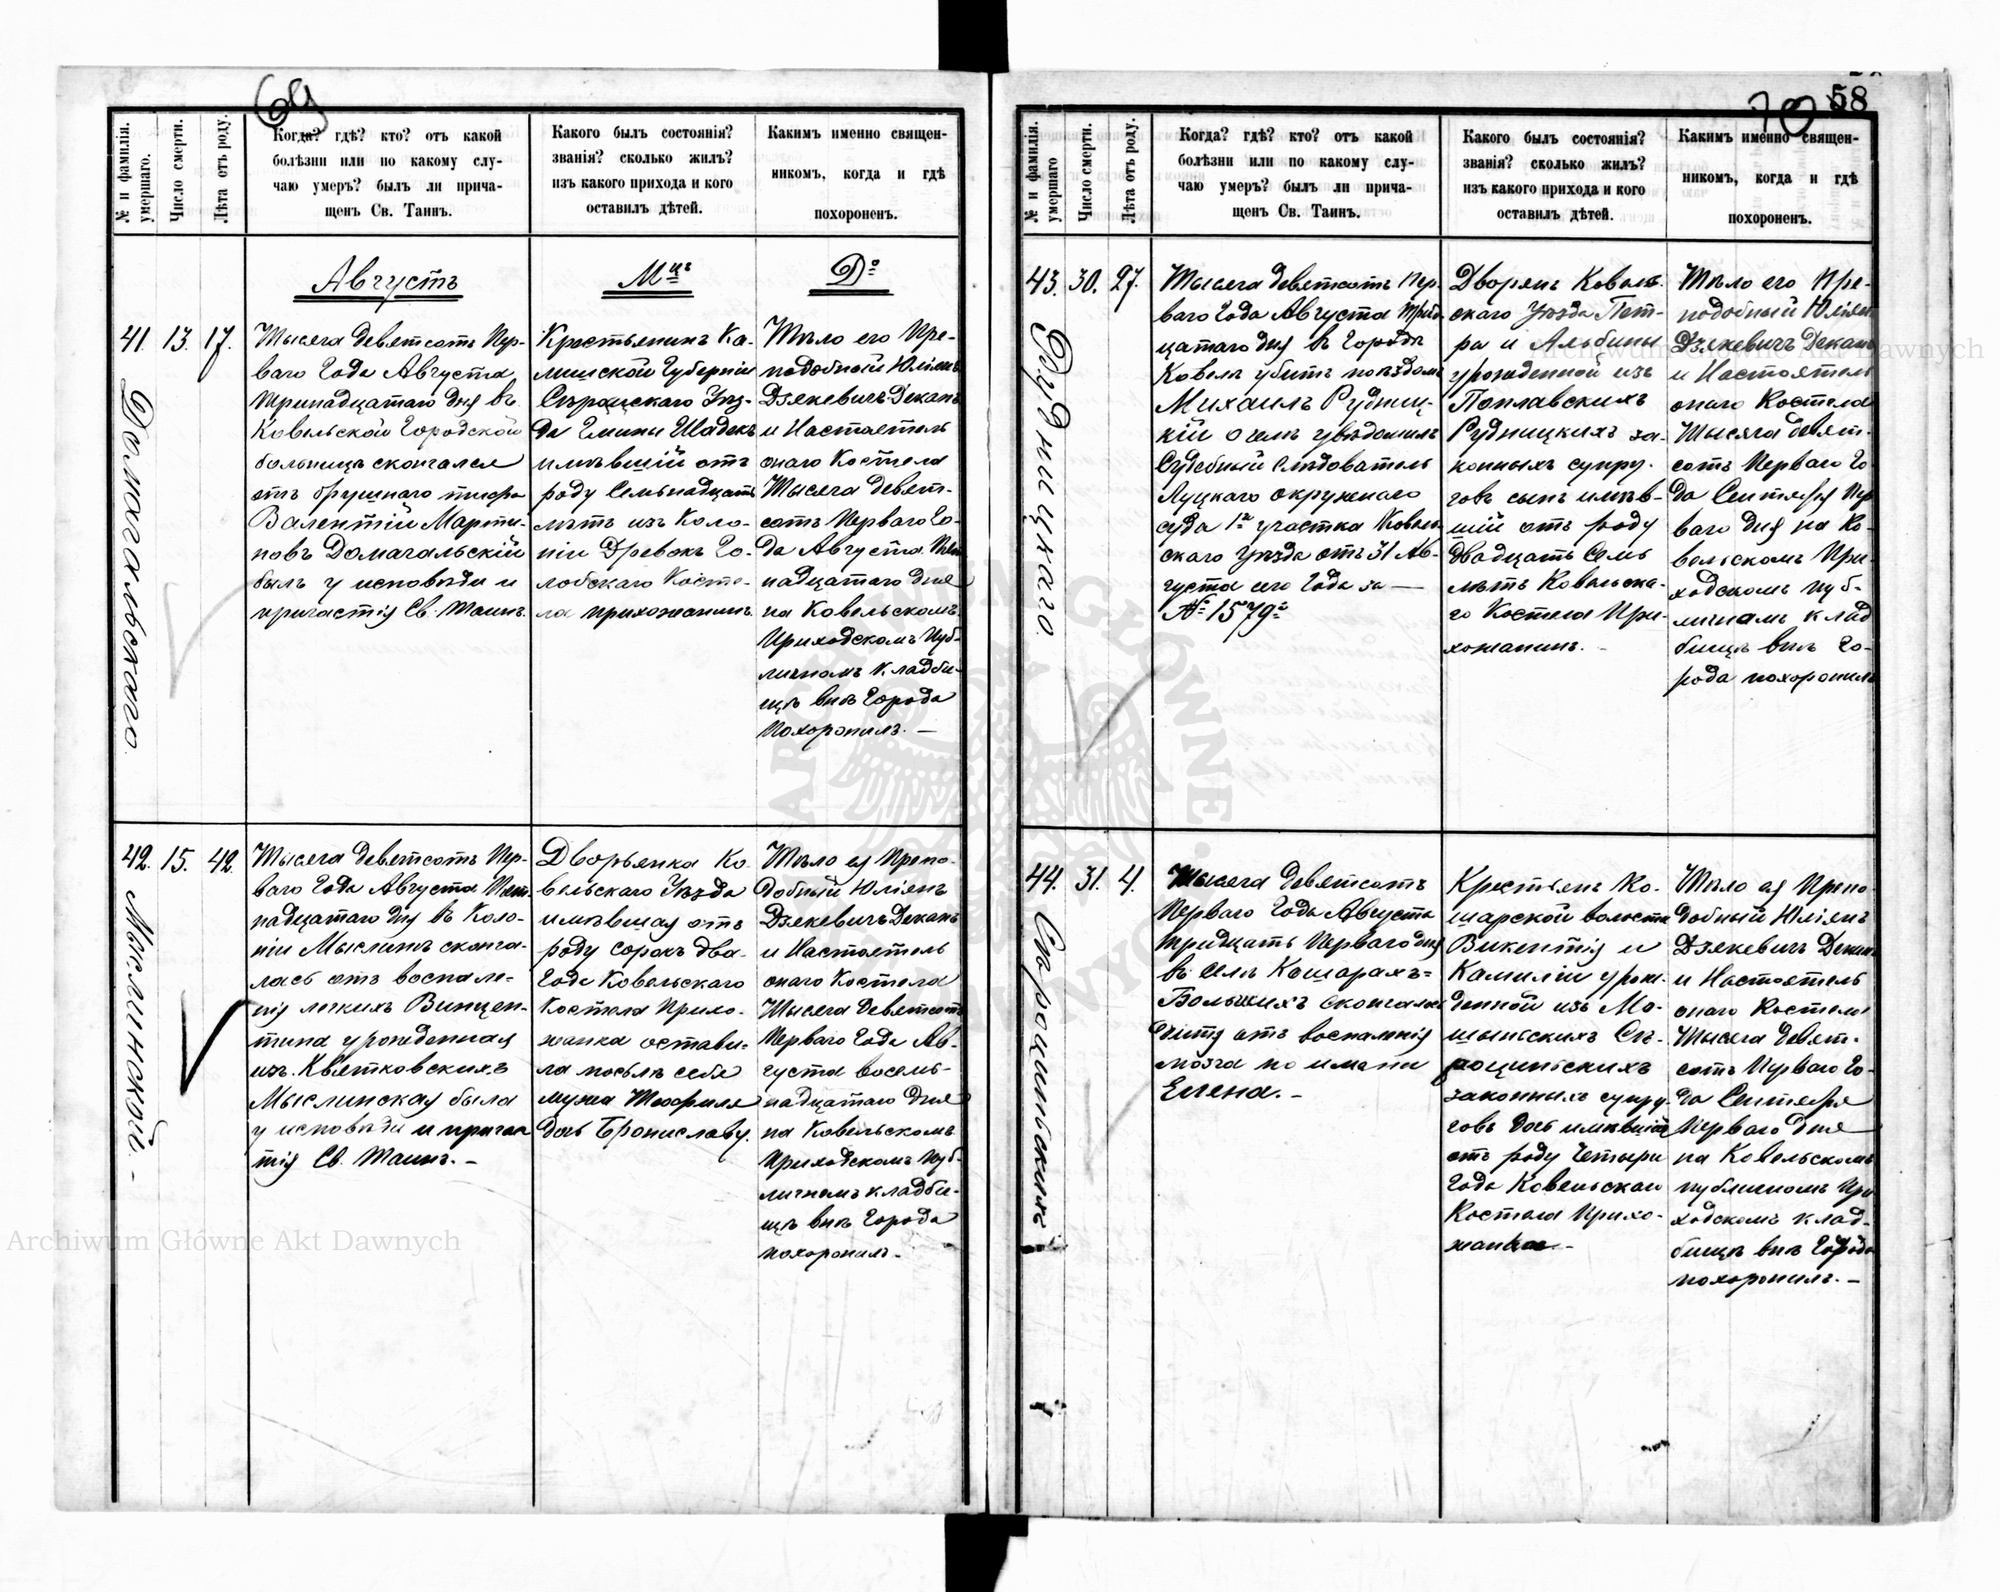 69
58
70
№ и фамилія.
умершаго.
Число смерти.
Лѣта отъ роду.
Когда? гдѣ? кто? отъ какой
болѣзни или по какому слу-
чаю умеръ? былъ ли прича-
щенъ Св. Таинъ.
Какого былъ состоянія?
званія? сколько жилъ?
изъ какого прихода и кого
оставилъ дѣтей.
Какимъ именно священ-
никомъ, когда и гдѣ
похороненъ.
Августъ
Мцъ
До
41. 13. 17.
Домагальскаго.
Тысяча девятсотъ Пер-
ваго Года Августа
Тринадцатаго дня въ
Ковельской Городской
больницѣ скончался
отъ брушнаго тифа
Валентій Марти-
новъ Домагальскій
былъ у исповѣди и
причастія Св. Таинъ.
Крестьянинъ Ка-
лишской Губерніи
Сѣрадскаго Уѣз-
да Гмины Шадекъ
имѣвшій отъ
роду Семьнадцать
лѣтъ изъ Коло-
ніи Древокъ Го-
лобскаго Косте-
ла прихожанинъ.
Тѣло его Пре-
подобный Юліянъ
Дзякевичъ Деканъ
и Настоятель
онаго Костела
Тысяча девят-
сотъ Перваго Го-
да Августа Пят-
надцатаго дня
на Ковельскомъ
Приходскомъ Пуб-
личномъ Кладби-
щѣ внѣ Города
Похоронилъ. —
42. 15. 42.
Мыслинской. -
Тысяча девятсотъ Пер-
ваго Года Августа Пят-
надцатаго дня въ Коло-
ніи Мыслинъ сконча-
лась отъ воспале-
нія легкихъ Винцен-
тина урожденная
изъ Квятковскихъ
Мыслинская была
у исповѣди и причас
тія Св. Таинъ. -
Дворянка Ко-
вельскаго Уѣзда
имѣвшая отъ
роду сорокъ два
Года Ковельскаго
Костела Прихо-
жанка остави-
ла послѣ себя
мужа Теофиля
дочь Брониславу.
Тѣло ея Препо-
добный Юліянъ
Дзякевичъ Деканъ
и Настоятель
онаго Костела
Тысяча девятсотъ
Перваго Года Ав-
густа восемь-
надцатаго дня
на Ковельскомъ
Приходскомъ Пуб-
личномъ кладби-
щѣ внѣ Города
похоронилъ. -
№ и фамилія.
умершаго
Число смерти.
Лѣта отъ роду.
Когда? гдѣ? кто? отъ какой
болѣзни или по какому слу-
чаю умеръ? былъ ли прича-
щенъ Св. Таинъ.
Какого былъ состоянія?
званія? сколько жилъ?
изъ какого прихода и кого
оставилъ дѣтей.
Какимъ именно священ-
никомъ, когда и гдѣ
похороненъ.
43. 30. 27.
Рудницкаго.
Тысяча девятсотъ Пер-
ваго Года Августа Трид-
цатаго дня въ Городѣ
Ковель убитъ поѣздомъ
Михаилъ Рудниц-
кій о чемъ увѣдомилъ
Судебный Слѣдователь
Луцкаго окружнаго
суда 1го участка Ковель-
скаго уѣзда отъ 31 Ав-
густа его Года за —
№ 1579.
Дворянъ Ковель-
скаго Уѣзда Пет-
ра и Альбины
урожденной изъ
Поплавскихъ
Рудницкихъ за-
конныхъ супру-
говъ сынъ имѣв-
шій отъ роду
двадцать Семь
лѣтъ Ковельска-
го Костела При-
хожанинъ. -
Тѣло его Пре-
подобный Юліянъ
Дзякевичъ Деканъ
и Настоятель
онаго Костела
Тысяча девят-
сотъ Перваго Го-
да Сентября Пер
ваго дня на Ко-
вельскомъ При-
ходскомъ пуб-
личномъ клад
бищѣ внѣ Го-
рода похоронилъ
44. 31. 4.
Сѣрощинскихъ
Тысяча девятсотъ
Перваго Года Августа
тридцать Перваго дня
въ Селѣ Кошарахъ=
Большихъ скончалась
отъ воспаленія
мозга по имени
Елена. -
Крестьянъ Ко-
шарской волости
Викентія и
Камиліи урож-
денной изъ Мо-
шынскихъ Сѣ-
рощинскихъ
законныхъ супру
говъ дочь имѣвшая
отъ роду Четыри
Года Ковельскаго
Костела Прихо-
жанка -
Тѣло ея Препо-
добный Юліянъ
Дзякевичъ Деканъ
и Настоятель
онаго Костела
Тысяча девят-
сотъ Перваго Го-
да Сентября
Перваго дня
на Ковельскомъ
публичномъ При
ходскомъ клад-
бищѣ внѣ Города
похоронилъ. —
Archiwum Główne Akt Dawnych
Archiwum Główne Akt Dawnych
ARCHIWUM GŁÓWNE AKT DAWNYCH